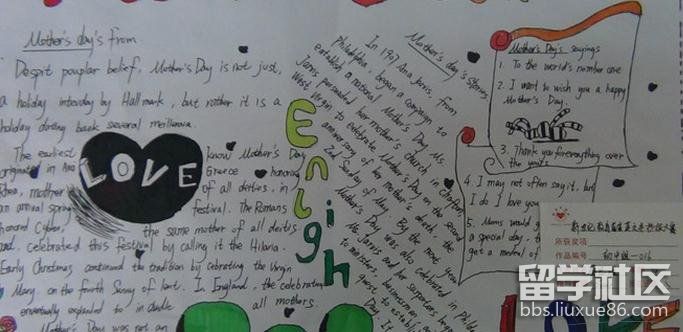 Mother's day's from
Despit pouplar belief, Mother's Day is not just
a holiday intevday by Hallmark, but rather it is a
holiday dating back several
The earliest
know Mother's Day
LOVE
originated in
Greece honoring
mother
of all deities, in
an annual spring
festival. The Romans
honored
the same mother of all deities
and, celebrated this festival by calling it the Hilaria.
Early Christmas continued the tradition by celebrating the Virgin
Mary on the fourth Sunday of lent. In England, the celebrating
eventually expanded to include
all mothers
Mother's Day was not an
English
Mother's day's stories
In 1907 Ana Jarvis, from
Philadelphia, began a campaign to
establish a national Mother's Day. Ms.
Jarvis persuaded her mother's church in Grafton,
West Virgin to celebrate Mother's Day on the second
anniversary of her mother's death, the
2nd Sunday of May. By the next year
Mother's Day was also celebrated in Philade
Ms Jarvis and her supporters began
to ministers, businessman
quest to establish
Day. I
Mother's Day's sayings
1. To the world's number one
2. I want to wish you a happy
Mother's Day.
3. Thank you for everything over
the years
4. I may not often say it, but
I do I love you
5. Moms would g
a special day, t
get a medal of
所获奖项
作品编号
初中组-016
留学社区
bbs.liuxue86.com